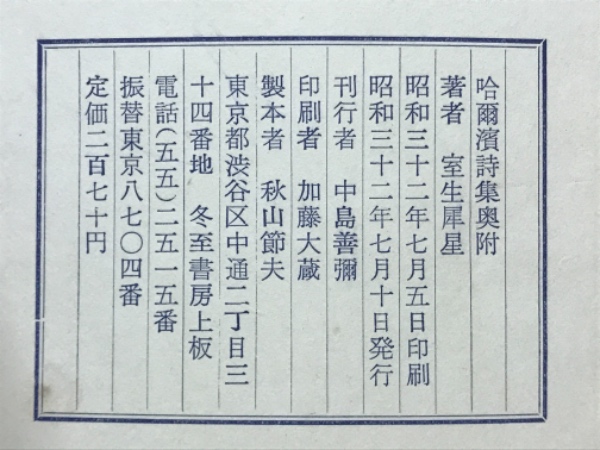 哈爾濱詩集奥附
著者　室生犀星
昭和三十二年七月五日印刷
昭和三十二年七月十日発行
刊行者　中島善彌
印刷者　加藤大蔵
製本者　秋山節夫
東京都渋谷区中通二丁目三
十四番地　冬至書房上板
電話(五五)二五一五番
振替東京八七〇四番
定価二百七十円